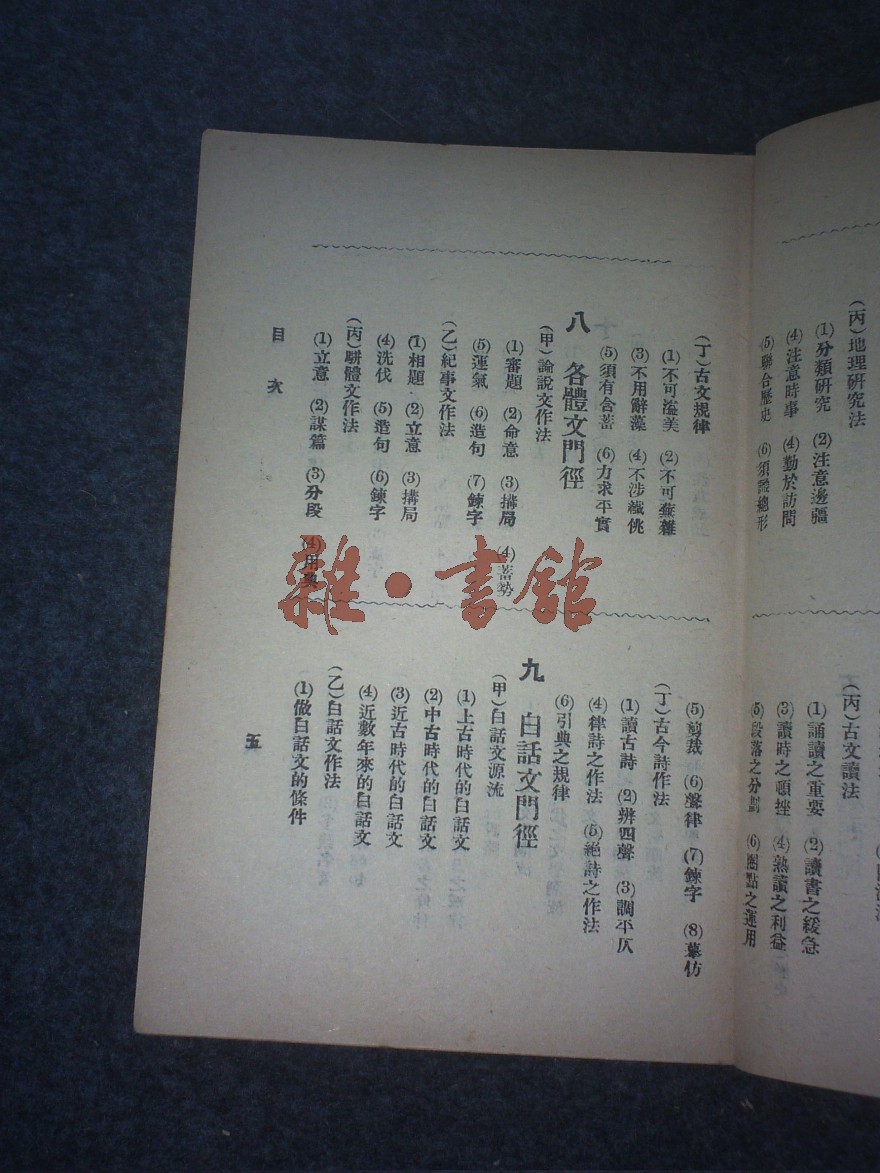 (丙)地理研究法
(1)分類研究 (2)注意邊疆
(4)注意時事 (4)勤於訪問
(5)聯合歷史 (6)須體總形
(丙)古文讀法
(1)誦讀之重要 (2)讀書之緩急
(3)讀時之頓挫 (4)熟讀之利益
(5)段落之分劃 (6)圈點之運用
(丁)古文規律
(1)不可溢美 (2)不可蕪雜
(3)不用辭藻 (4)不涉纖佻
(5)須有含蓄 (6)力求平實
八 各體文門徑
(甲)論說文作法
(1)審題 (2)命意 (3)搆局 (4)蓄勢
(5)運氣 (6)造句 (7)鍊字
(乙)紀事文作法
(1)相題 (2)立意 (3)搆局
(4)洗伐 (5)造句 (6)鍊字
(丙)駢體文作法
(1)立意 (2)謀篇 (3)分段 (4)用典
(5)剪裁 (6)聲律 (7)鍊字 (8)摹仿
(丁)古今詩作法
(1)讀古詩 (2)辨四聲 (3)調平仄
(4)律詩之作法 (5)絕詩之作法
(6)引典之規律
九 白話文門徑
(甲)白話文源流
(1)上古時代的白話文
(2)中古時代的白話文
(3)近古時代的白話文
(4)近數年來的白話文
(乙)白話文作法
(1)做白話文的條件
目次
五
雜·書館